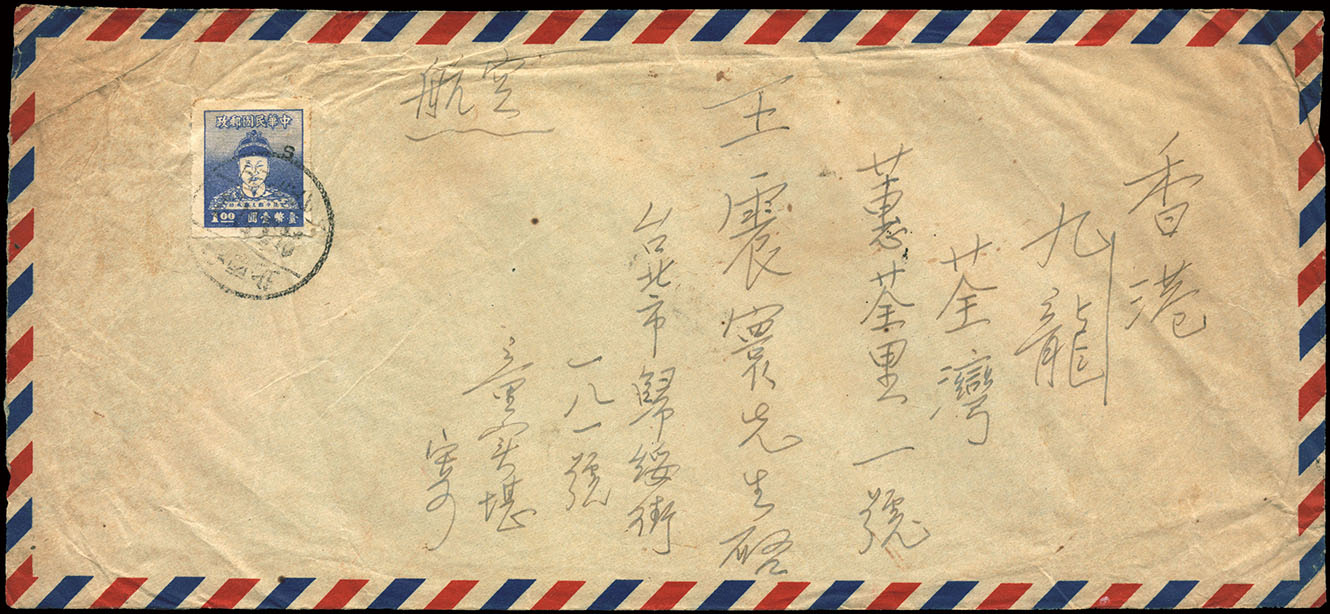 香港
九龍
荃灣
蕙荃里一號
王震寰先生啓
台北市歸綏街
一八一號
童寄堪
寄
航空
中華民國郵政
臺幣壹圓
1.00
S